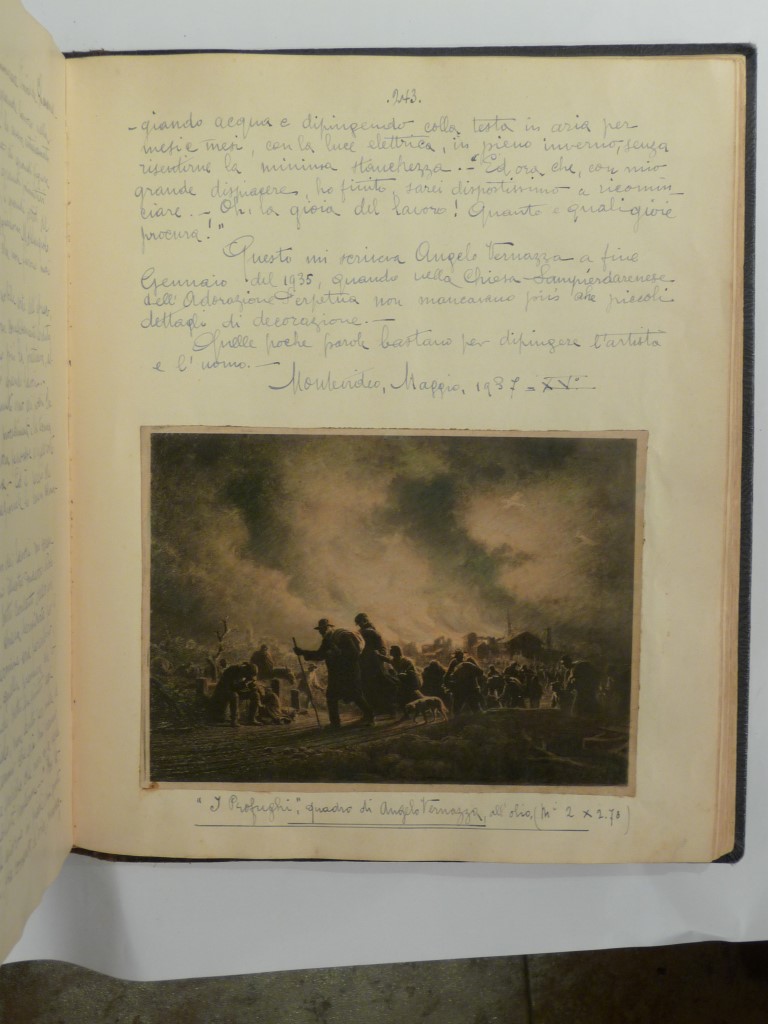 .243.
-giando acqua e dipingendo colla testa in aria per
mesi e mesi, con la luce elettrica, in pieno inverno, senza
risentirne la minima stanchezza.- "Ed ora che, con mio
grande dispiacere, ho finito, sarei dispostissimo a ricomin_
ciare. - Oh, la gioia del lavoro! Quante e quali gioie
procura!"
Questo mi scriveva Angelo Vernazza a fine
Gennaio del 1935, quando nella Chiesa Sampierdarenese
dell'Adorazione Perpetua non mancavano più che piccoli
dettagli di decorazione. -
Quelle poche parole bastano per dipingere l'artista
e l'uomo. -
- Montevideo, Maggio, 1937 = XV°
"I Profughi", quadro di Angelo Vernazza, all'olio, (M° 2 x 2.70)